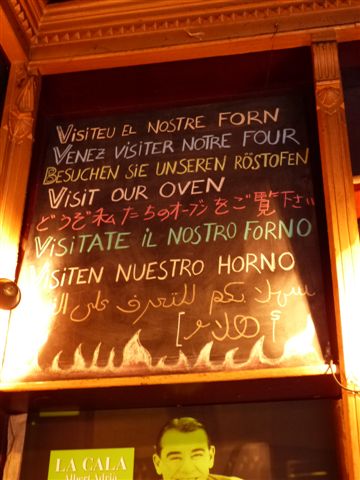 VISITEU EL NOSTRE FORN
VENEZ VISITER NOTRE FOUR
BESUCHEN SIE UNSEREN RÖSTOFEN
VISIT OUR OVEN
どうぞ私たちのオーブンをご覧下さい
VISITATE IL NOSTRO FORNO
VISITEN NUESTRO HORNO
بكم للتعرف على
LA CALA
Albert Adrià